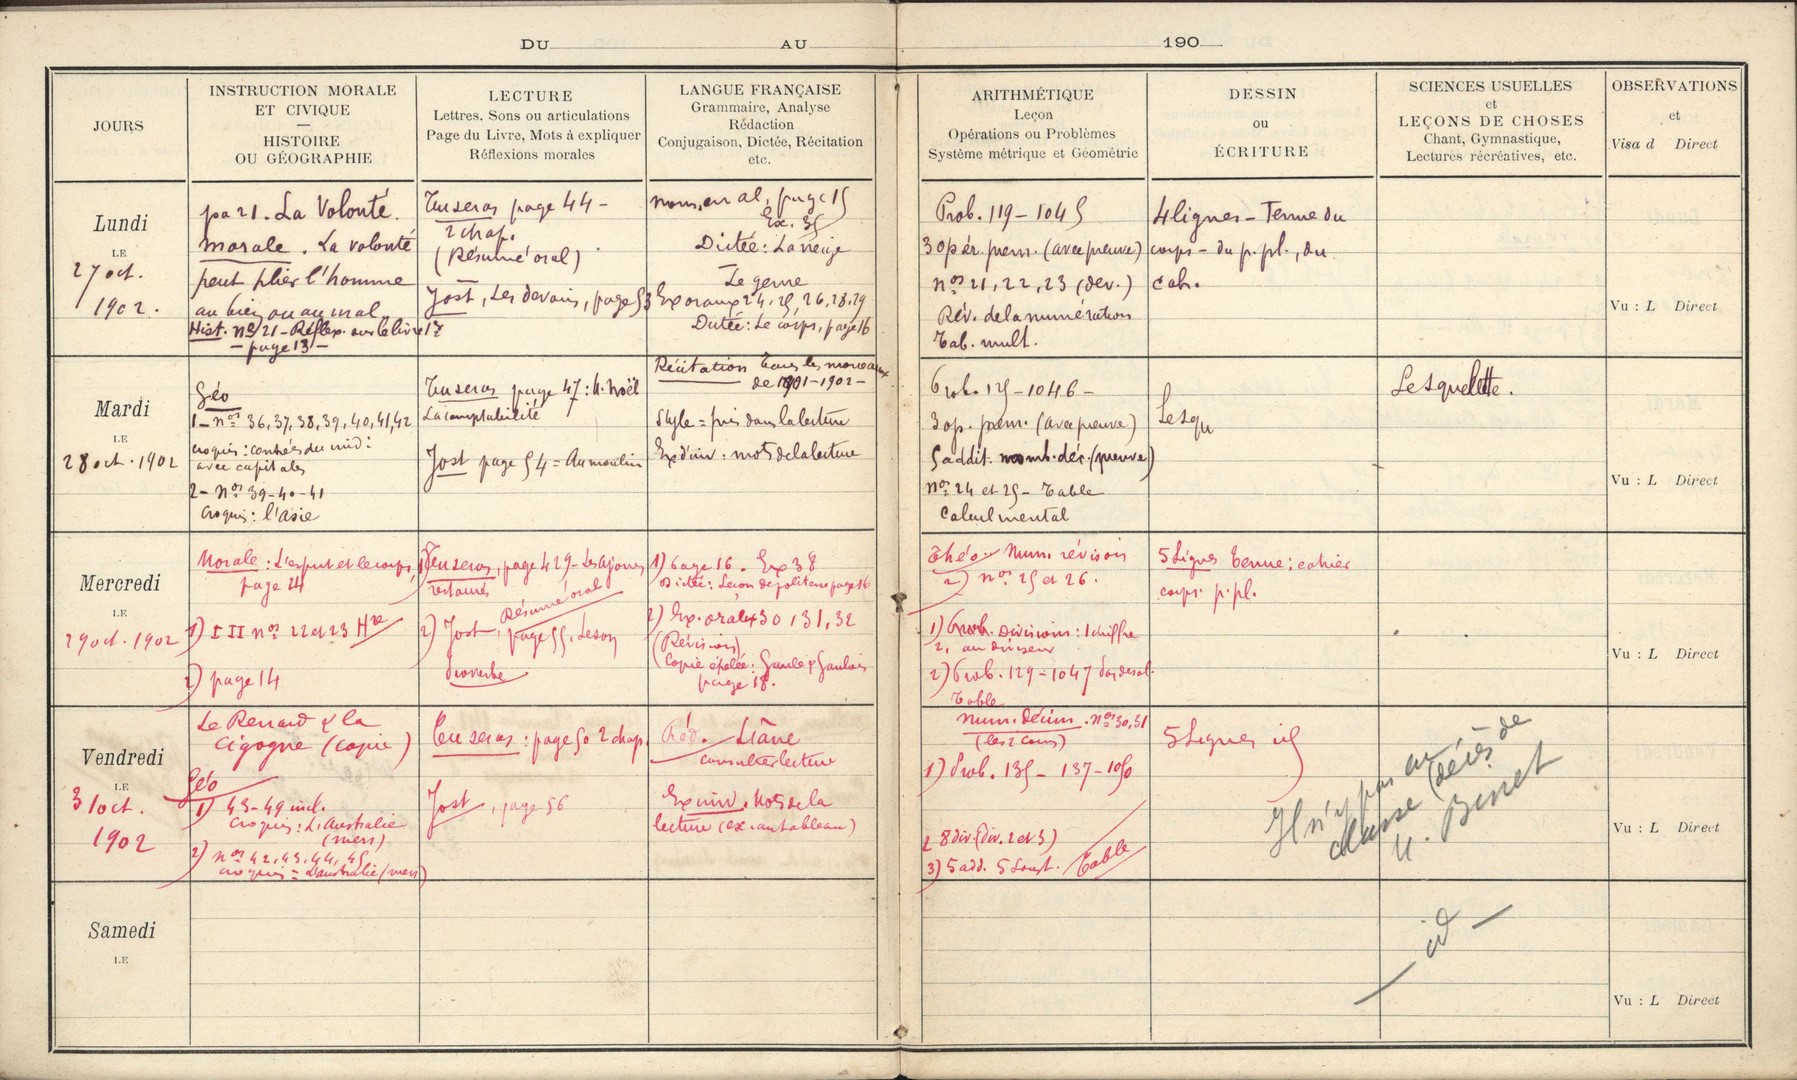 DU AU 190
JOURS
INSTRUCTION MORALE
ET CIVIQUE
HISTOIRE
OU GÉOGRAPHIE
LECTURE
Lettres. Sons ou articulations
Page du Livre, Mots à expliquer
Réflexions morales
LANGUE FRANÇAISE
Grammaire, Analyse
Rédaction
Conjugaison, Dictée, Récitation
etc.
ARITHMÉTIQUE
Leçon
Opérations ou Problèmes
Système métrique et Géométrie
DESSIN
OU
ÉCRITURE
SCIENCES USUELLES
et
LEÇONS DE CHOSES
Chant, Gymnastique,
Lectures récréatives, etc.
OBSERVATIONS
et
Visa d Direct
Lundi
LE
27 oct.
1902.
pa 21. La Volonté.
morale. La volonté
peut plier l'homme
au bien ou au mal.
Hist. nos 21 - Réflex. sur le livre 17
- page 13 -
Tu seras page 44 -
2 chap.
(Résumé oral)
Jost, Les devoirs, page 53
noms en al, page 15
Ex. 35
Dictée: La neige
Le genre
Ex oraux 24, 25, 26, 28, 29
Dictée: Le corps, page 16
Prob. 119 - 1045
3 opér. prem. (avec preuve)
nos 21, 22, 23 (dev.)
Rév. de la numération
Tab. mult.
4 lignes - Tenue du
corps - du p. pl., du
cah.
Vu : L Direct
Mardi
LE
28 oct. 1902
Géo
1 - nos 36, 37, 38, 39, 40, 41, 42
croquis: contrées du midi
avec capitales
2 - nos 39-40-41
croquis: l'Asie
Tu seras page 47: M. Noël
La comptabilité
Jost page 54 = Au moulin
Récitation Tous les morceaux
de 1901-1902 -
Style = pris dans la lecture
Ex d'inv: mots de la lecture
Prob. 125 - 1046 -
3 op. prem. (avec preuve)
5 addit. nomb. déc. (preuve)
nos 24 et 25 - Table
Calcul mental
Le squ
Le squelette.
Vu : L Direct
Mercredi
LE
29 oct. 1902
Morale: L'esprit et le corps,
page 24
1) I II nos 22 et 23 Hre
2) page 14
1) Tu seras, page 429 - Les ajoncs
Résumé oral
2) Jost, page 55. Leçon
proverbe
1) Page 16. Ex 38
Dictée: Leçon de politesse page 16
2) Ex. oraux 30, 31, 32
(Révision)
Copie épelée: Gaule & Gaulois
page 18.
Théo - Num. révision
2) nos 25 et 26.
1) Prob. Divisions: 1 chiffre
au diviseur
2) Prob. 129 = 1047
Table
5 Lignes Tenue: cahier
corps. p. pl.
Vu : L Direct
Vendredi
LE
31 oct.
1902
Le Renard & la
Cigogne (copie)
Géo
1) 43-49 incl.
Croquis: L'Australie
(mers)
2) nos 42, 43, 44, 45
croquis = L'australie (mers)
Tu seras: page 50 2 chap.
Jost, page 56
Réd. L'âne
consulter lecture
Ex inv. Mots de la
lecture (ex. au tableau)
Num. décim. nos 30, 31
(les 2 cours)
1) Prob. 135 - 137 - 1050
2 8 div. (div. 2 et 3)
3) 5 add. 5 soust. Table
5 Lignes id
Il n'y pas eu
classe (décès de
M. Benet
Vu : L Direct
Samedi
LE
- id -
Vu : L Direct